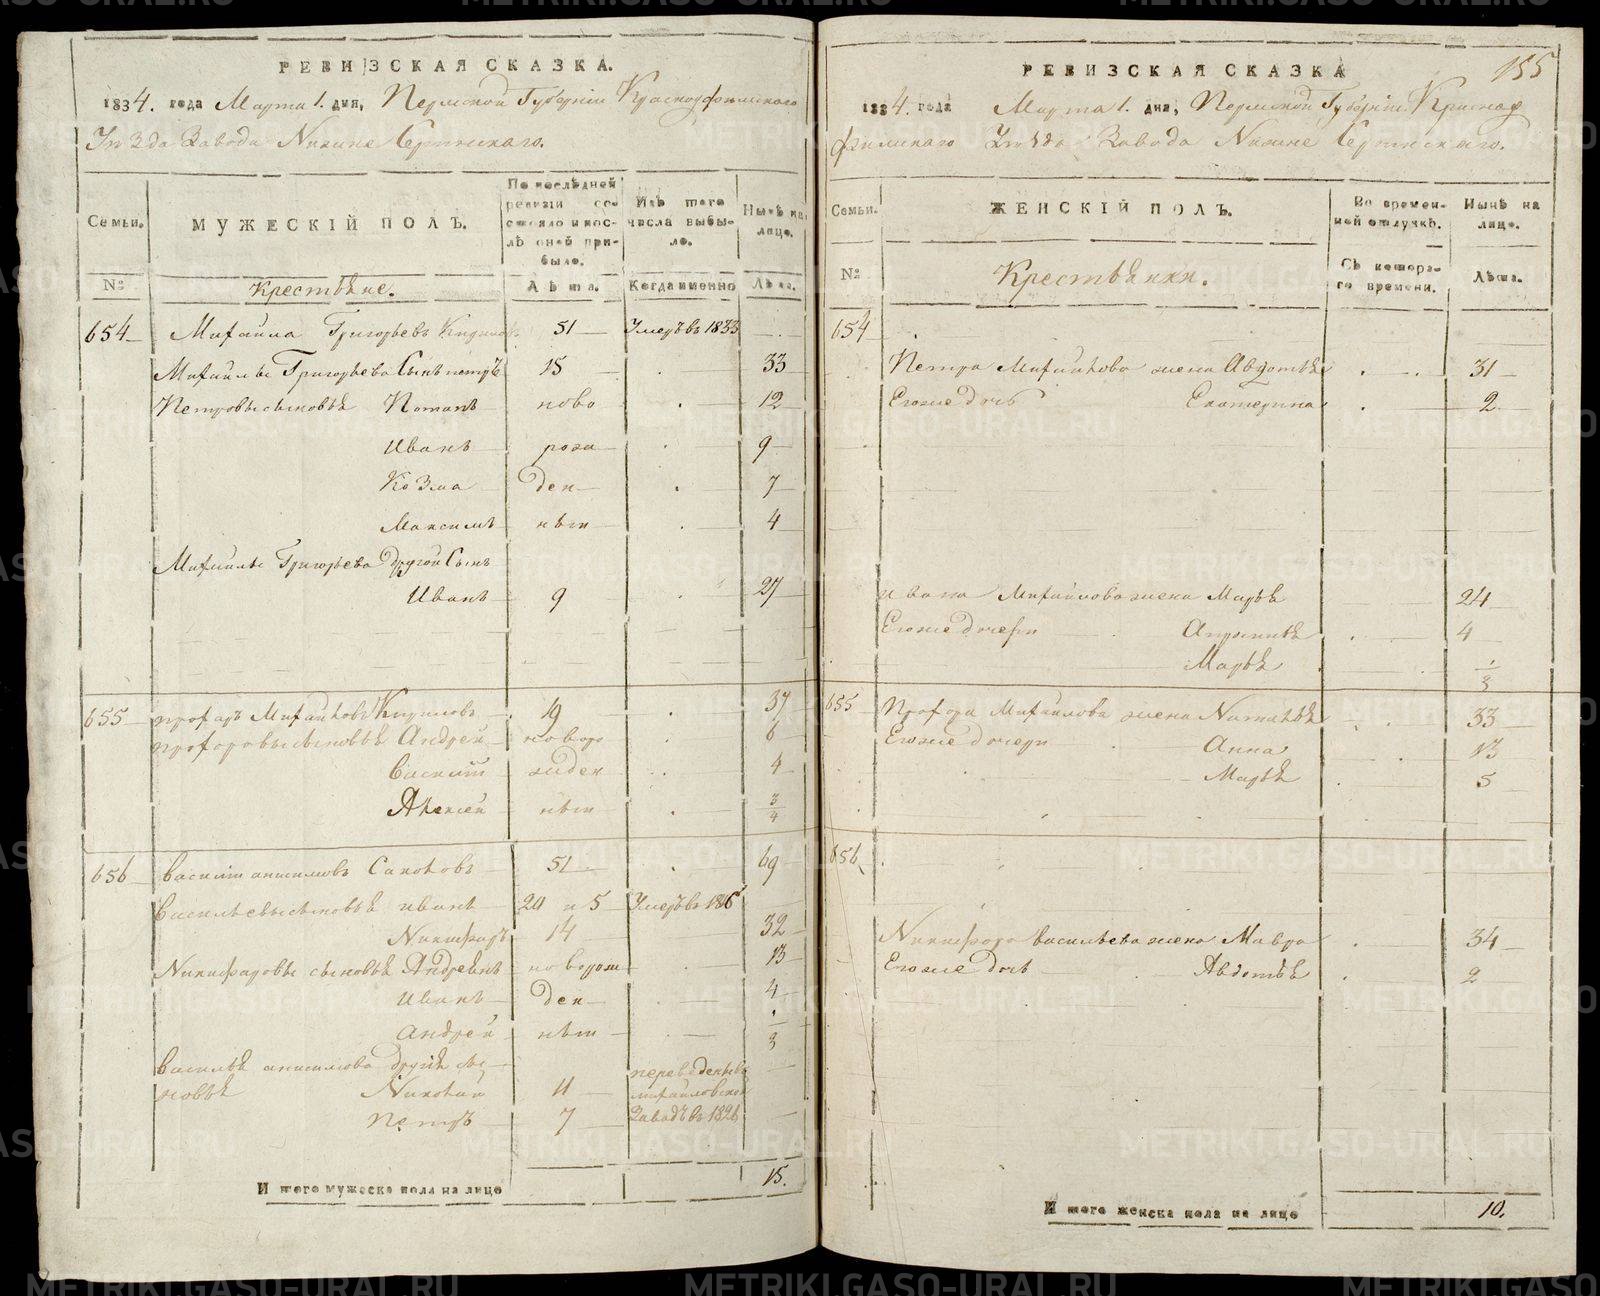 РЕВИЗСКАЯ СКАЗКА.
1834. года Марта 1. дня, Пермской Губерніи Красноуфимскаго
Уѣзда Завода Нижне Сергинскаго.
Семьи.
МУЖЕСКІЙ ПОЛЪ.
По послѣдней ревизіи состояло и послѣ оной прибыло.
Изъ того числа выбыло.
Нынѣ на лицо.
№
Крестьяне.
Лѣта.
Когда именно
Лѣта.
654 Михайла Григорьевъ 51 Умеръ въ 1833
Михайлы Григорьева Сынъ петръ 15 33
Петровы сыновья Потапъ ново 12
Иванъ рож 9
Козма ден 7
Максимъ нът 4
Михайлы Григорьева другой Сынъ
Иванъ 9 27
655 прохоръ Михайловъ Кириловъ 19 37
прохоровы сыновья Андрей новоро 6
Василій жден 4
Алексей нът 3/4
656 Василій анисимовъ 51 69
Васильевы сыновья иванъ 20 и 5 Умеръ въ 1816
Никифоръ 14 32
Никифоровы сыновья Андреянъ новорож 13
Иванъ ден 4
Андрей нът 1/3
Василья анисимова другія сы
новья Николай 11 переведены въ михайловской
Петръ 7 Заводъ въ 1826
И того мужеска пола на лицо 15.
155
РЕВИЗСКАЯ СКАЗКА
1834. года Марта 1. дня, Пермской Губерніи Красноу
фимскаго Уѣзда Завода Нижне Сергинскаго.
Семьи.
ЖЕНСКІЙ ПОЛЪ.
Во временной отлучкѣ.
Нынѣ на лицо.
№
Крестьянки.
Съ котораго времени.
Лѣта.
654
Петра Михайлова жена Авдотья 31
Егоже дочь Екатерина 2
ивана Михайлова жена Марья 24
Егоже дочери 4
Марья 1/3
655 Прохора Михайлова жена Наталья 33
Егоже дочери Анна 13
Марья 5
656
Никифора Васильева жена Мавра 34
Егоже дочь Авдотья 2
И того женска пола на лицо 10.
METRIKI.GASO-URAL.RU